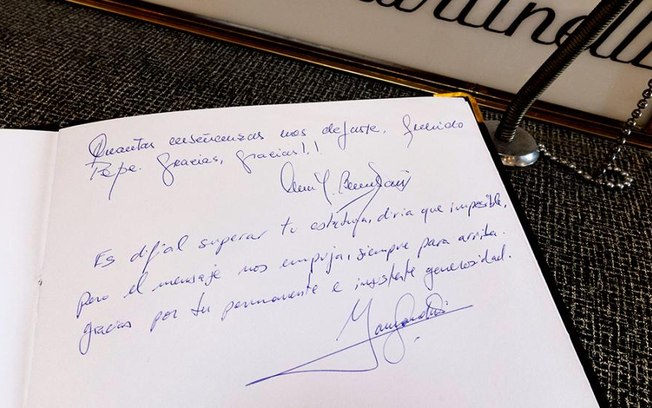 Martinelli
Cuantas enseñanzas nos dejaste, Querido
Pepe. Gracias, gracias!!
Es difícil superar tu estatura, diría que imposible,
pero el mensaje nos empuja, siempre para arriba.
Gracias por tu permanente e insistente generosidad.